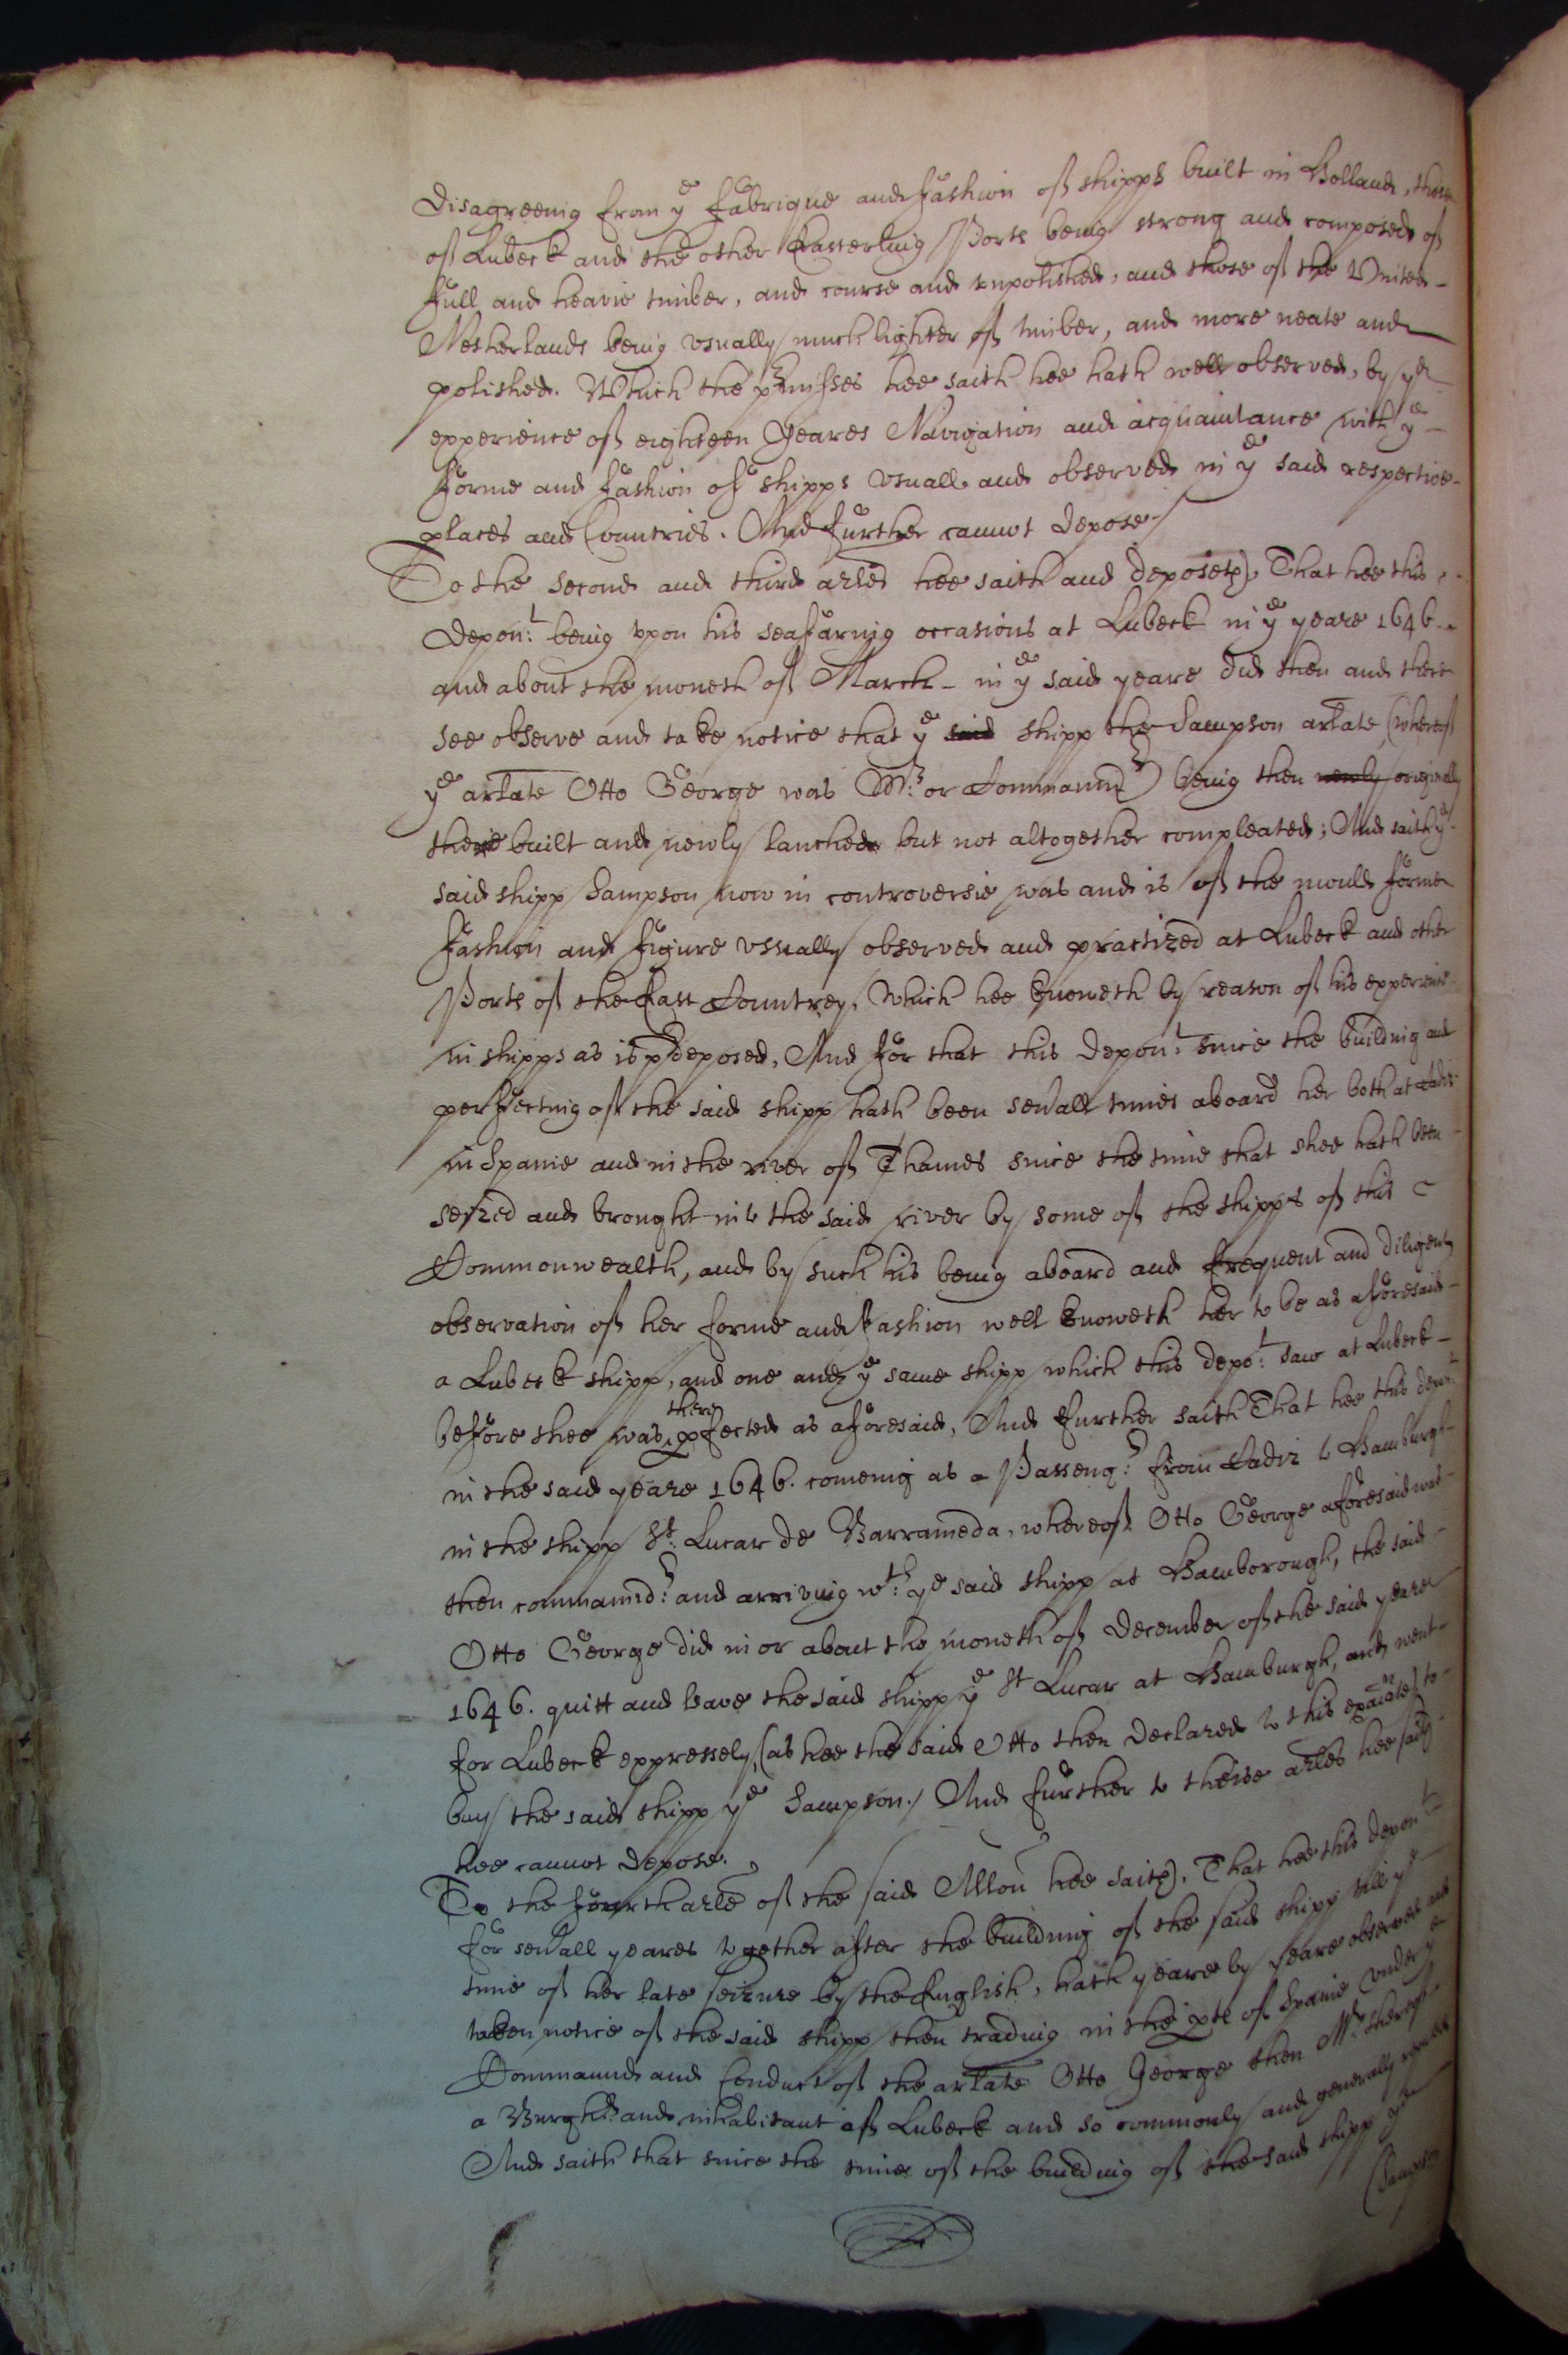 disagreeing from ye fabrique and fashion of shipps built in Holland, those
of Lubeck and the other Easterling Ports being strong and composed of
full and heavie timber, and course and unpolished, and those of the United
Netherlands being usually much lighter of timber, and more neate and
polished. Which the pr̃misses hee saith hee hath well observed, by ye
experience of eighteen yeares Navigation and acquaintance with ye
forme and fashion of shipps usuall and observed in ye said respective
places and Countries. And further cannot depose./
To the second and third arlēs hee saith and deposeth, That hee this
depont being upon his seafaring occasions at Lubeck in ye yeare 1646
and about the moneth of March in ye said yeare did then and there
see observe and take notice that ye said shipp the Sampson arlate (whereof
ye arlate Otto George was Mr or Commaundr) being then newly originally
there built and newly lanched but not altogether compleated; And saith ye
said shipp Sampson now in controversie was and is of the mould forme
fashion and figure usually observed and practized at Lubeck and other
Ports of the East Countrey, Which hee knoweth by reason of his experience
in shipps as is p̃deposed, And for that this depont since the building and
perfecting of the said shipp hath been sevall times aboard her both at Cadiz
in Spanie and in the river of Thames since the time that shee hath been
seized and brought into the said river by some of the shipps of this
Commonwealth, and by such his being aboard and frequent and diligent
observation of her forme and fashion well knoweth her to be as aforesaid
a Lubeck shipp, and one and ye same shipp which this depot saw at Lubeck
before shee was there p̱fected as aforesaid, And further saith That hee this depont
in the said yeare 1646. comeing as a Passengr from Cadiz to Hamburgh
in the shipp St Lucar de Barrameda, whereof Otto George aforesaid was
then commaundr and arriving wth ye said shipp at Hamborough, the said
Otto George did in or about the moneth of December of the said yeare
1646. quitt and leave the said shipp ye St Lucar at Hamburgh, and went
for Lubeck expressely, (as hee the said Otto then declared to this exaīate) to
buy the said shipp ye Sampson./ And further to theise arlēs hee saith
hee cannot depose.
To the fourth arlē of the said Allōn hee saith, That hee this depont
for sevall yeares together after the building of the said shipp till ye
time of her late seizure by the English, hath yeare by yeare observed and
taken notice of the said shipp then trading in the pte of Spanie under ye
Commaund and Conduct of the arlate Otto George then Mr thereof
a Burghr and inhabitant of Lubeck and so commonly and generally reputed
And saith that since the time of the building of the said shipp ye
Sampson